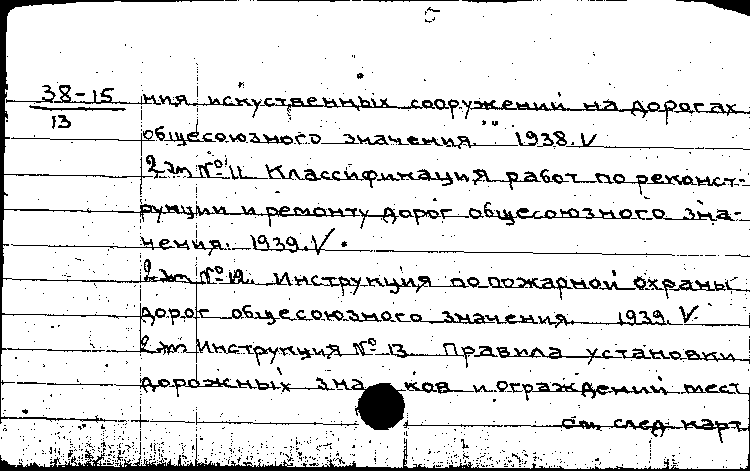 5
38-15 ния искуственных сооружений на дорогах
13 общесоюзного значения." 1938. V
2 эт № 11. Классификация работ по реконст-
рукции и ремонту дорог общесоюзного зна-
чения. 1939. V.
2 эт № 12. Инструкция по пожарной охраны
дорог общесоюзного значения. 1939. V.
2 эт Инструкция № 13. Правила установки
дорожных зна ков и ограждений мест
см. след. карт.